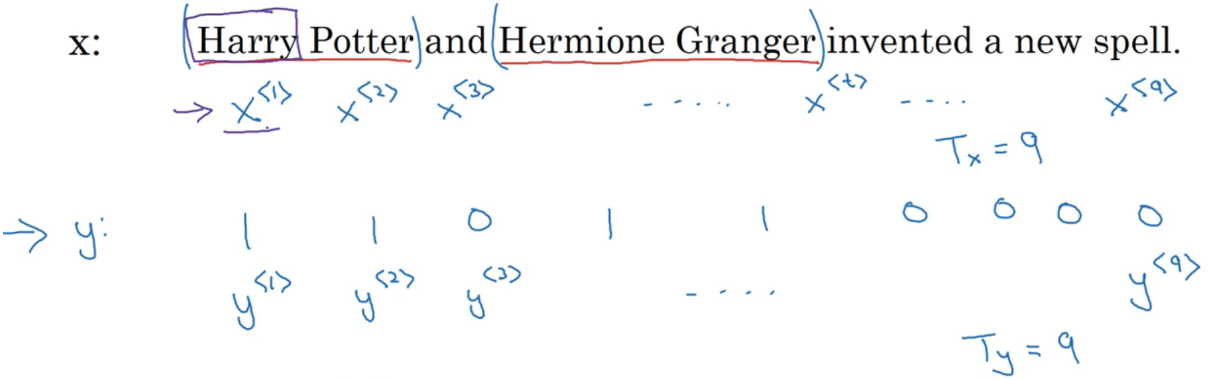 x: (Harry Potter) and (Hermione Granger) invented a new spell.
→ x<1> x<2> x<3> ..... x<t> .... x<9>
Tx = 9
→ y: 1 1 0 1 1 0 0 0 0
y<1> y<2> y<3> .... y<9>
Ty = 9